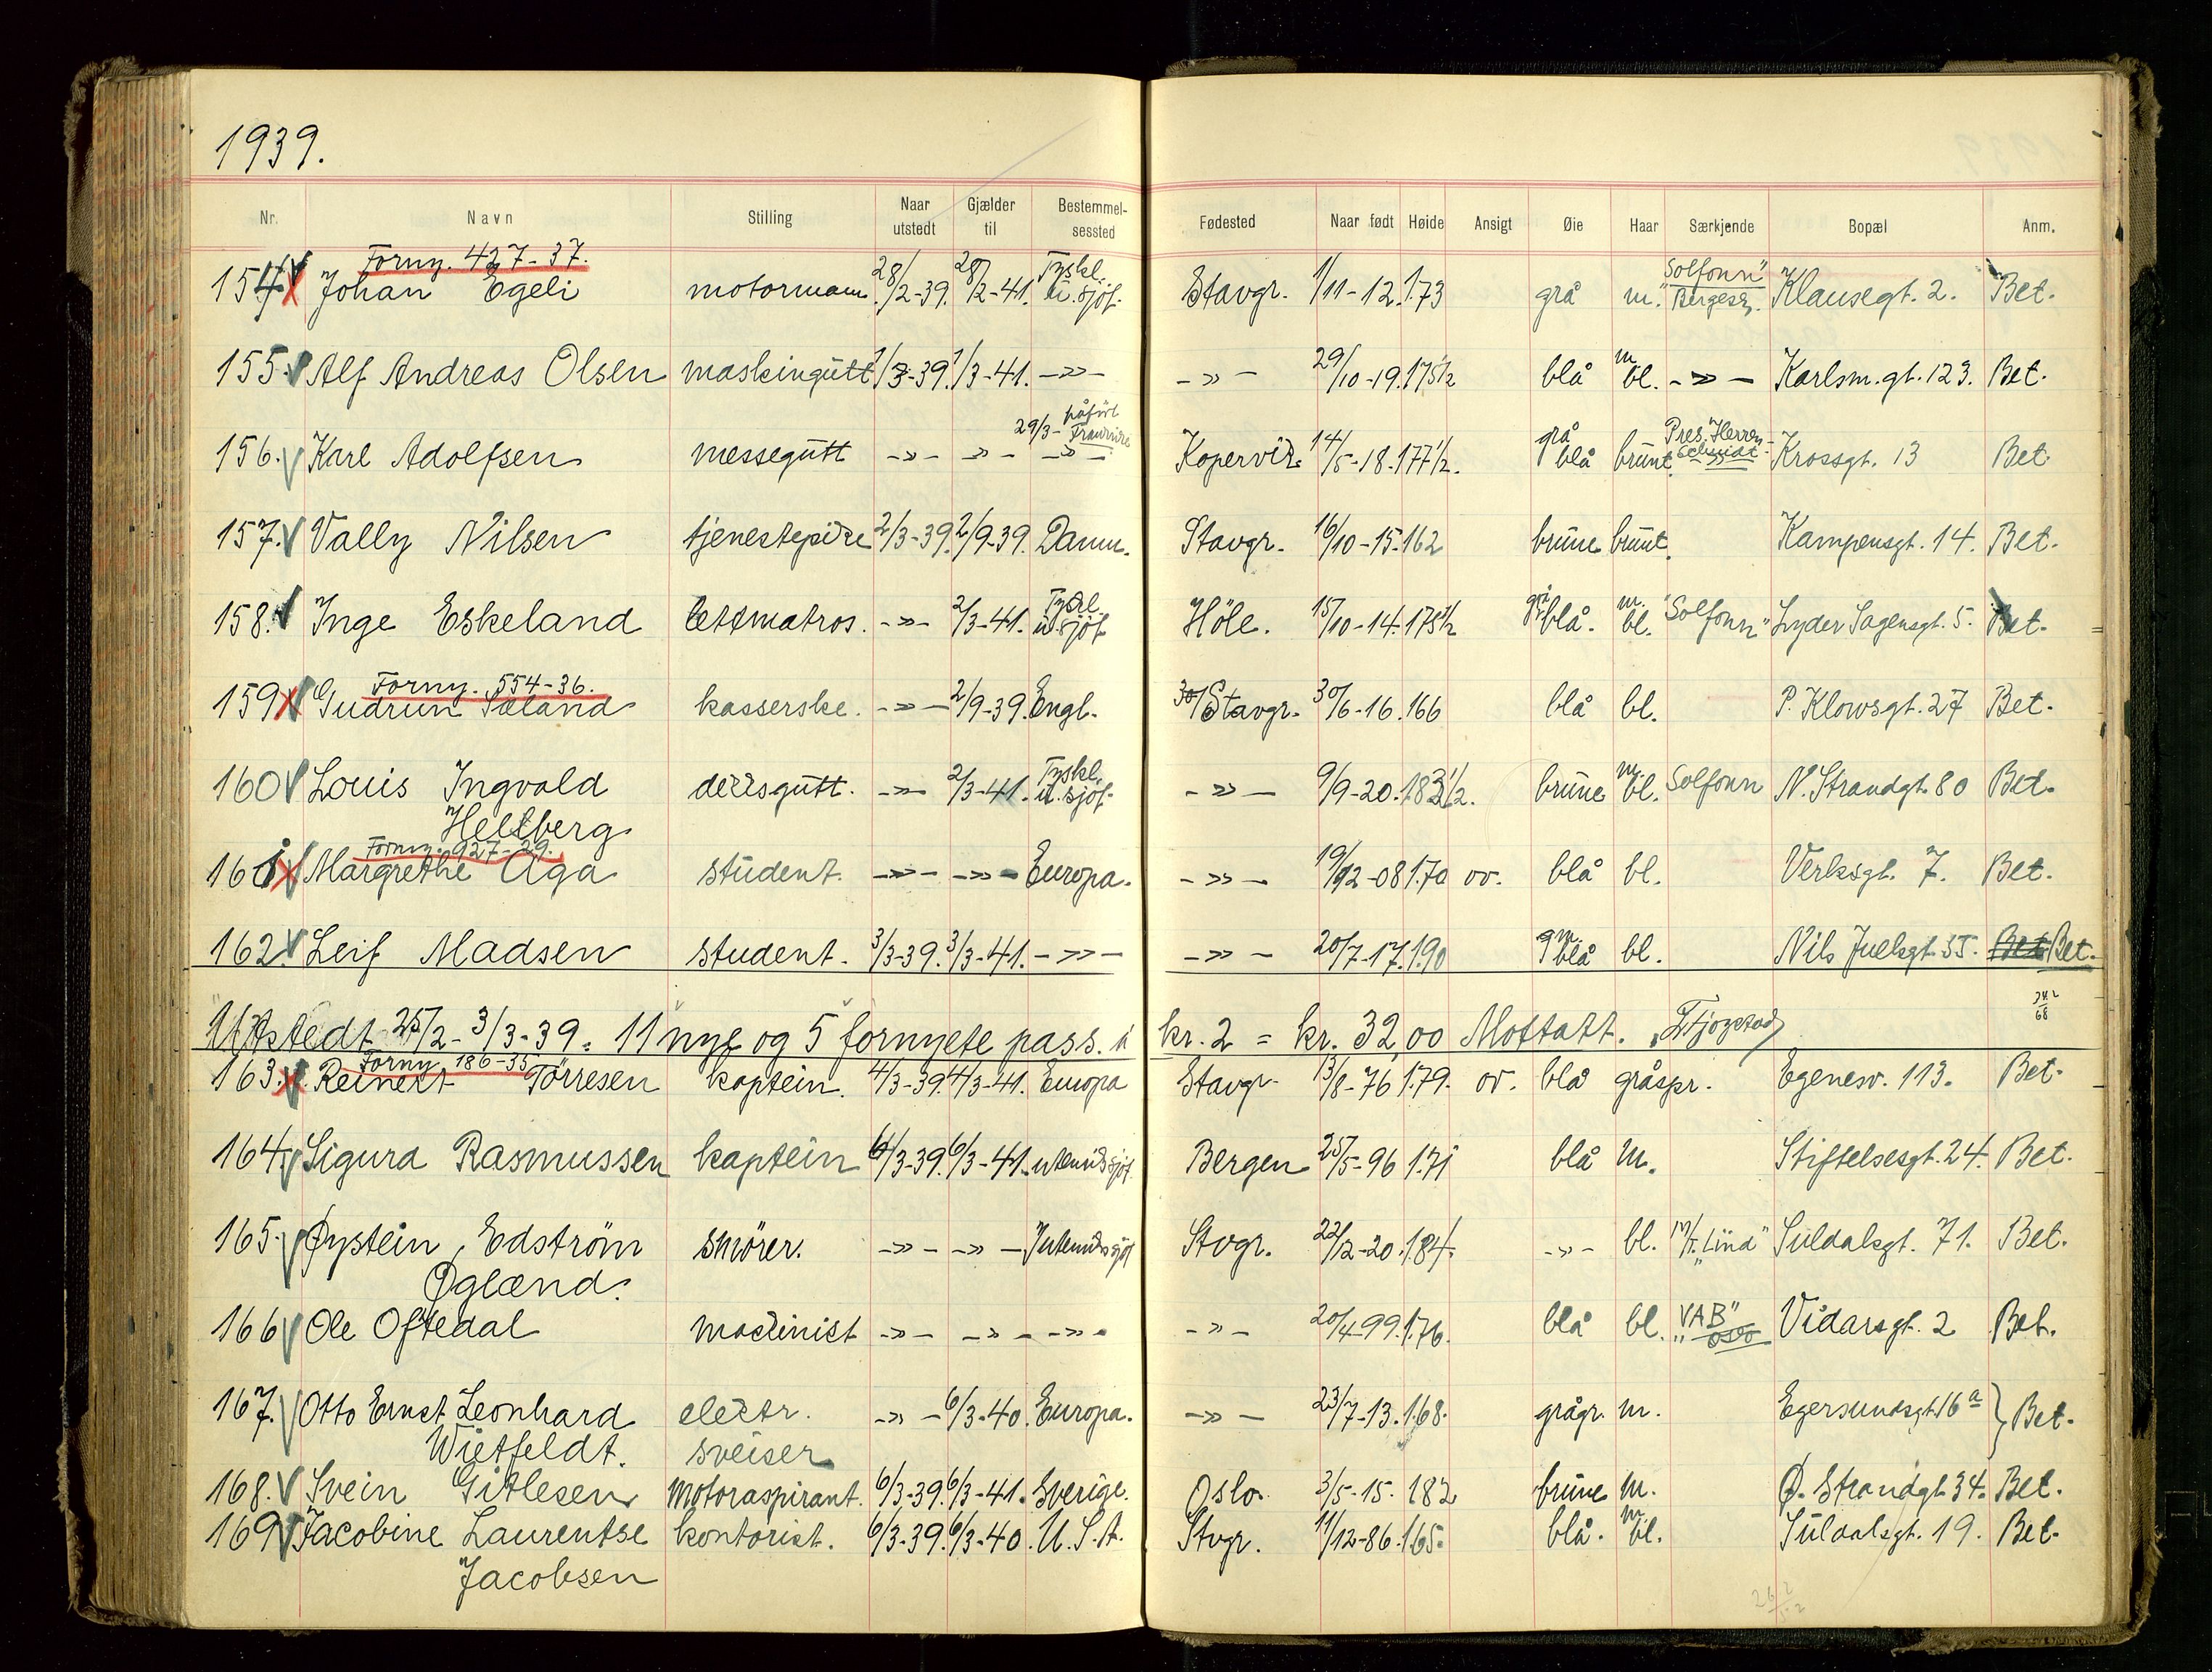 1939.
Nr. Navn Stilling Naar utstedt Gjælder til Bestemmelsessted Fødested Naar født Høide Ansigt Øie Haar Særkjende Bopæl Anm.
Forny. 427-37.
154 Johan Egeli motormann 28/2-39. 28/2-41. Tyskl. u. sjöf. Stavgr. 1/11-12. 1.73 grå m. "Solfonn" Bergesen. Klausegt. 2. Bet.
155. Alf Andreas Olsen maskingutt 1/3-39. 1/3-41. -»- -»- 29/10-19. 175½ blå m bl. -»- Karlsm.gt. 123. Bet.
29/3- påfört
156. Karl Adolfsen messegutt -»- -»- -»- Kopervik 14/5-18. 177½. grå blå brunt Krossgt. 13 Bet.
157. Vally Nilsen tjenestepike 2/3-39. 2/9-39. Danm. Stavgr. 16/10-15. 162 brune brunt. Kampensgt. 14. Bet.
158. Inge Eskeland lettmatros. -»- 2/3-41. Tyskl. u. sjöf. Höle. 15/10-14. 175½ grå blå. m. bl. "Solfonn" Lyder Sagensgt. 5. Bet.
Forny. 554-36.
159 Gudrun Sæland kasserske. -»- 2/9-39. Engl. Stavgr. 30/6-16. 166 blå bl. P. Klowsgt. 27 Bet.
160 Louis Ingvald dekksgutt. -»- 2/3-41. Tyskl. u. sjöf. -»- 9/9-20. 183½. brune m. bl. Solfonn N. Strandgt. 80 Bet.
Heltberg
Forny. 927-29.
161 Margrethe Aga student. -»- -»- Europa. -»- 19/12-08 1.70 ov. blå bl. Verksgt. 7. Bet.
162. Leif Madsen student. 3/3-39. 3/3-41. -»- -»- 20/7-17. 1.90 blå bl. Nils Juelsgt. 55. Bet Bet.
Utstedt 25/2 - 3/3-39. = 11 nye og 5 fornyete pass. á kr. 2 = kr. 32,00 Mottatt.
Forny. 186-35
163. Reinert Törresen kaptein. 4/3-39. 4/3-41. Europa Stavgr. 13/8-76 1.79. ov. blå gråspr. Egenesv. 113. Bet.
164. Sigurd Rasmussen kaptein 6/3-39. 6/3-41. utenriks sjöf. Bergen 25/5-96 1.71 blå m. Stiftelsesgt. 24. Bet.
165. Øystein Edström smörer. -»- -»- Utenriks sjöf. Stvgr. 22/12-20. 1.84. -»- bl. M/T. "Lind" Suldalsgt. 71. Bet.
Øglænd.
166 Ole Oftedal maskinist -»- -»- -»- -»- 20/4-99. 1.76. blå bl. "VAB" Oslo Vidarsgt. 2 Bet.
167. Otto Ernst Leonhard elektr. -»- 6/3-40. Europa. -»- 23/7-13. 1.68. grågr. m. Egersundsgt. 16a } Bet.
Wietfeldt. sveiser
168. Svein Gitlesen Motoraspirant. 6/3-39. 6/3-41. Sverige. Oslo. 3/5-15. 182 brune m. Ø. Strandgt. 34. Bet.
169 Jacobine Laurentse kontorist. 6/3-39. 6/3-40. U.S.A. Stvgr. 11/12-86. 1.65. blå. m. bl. Suldalsgt. 19. Bet.
Jacobsen